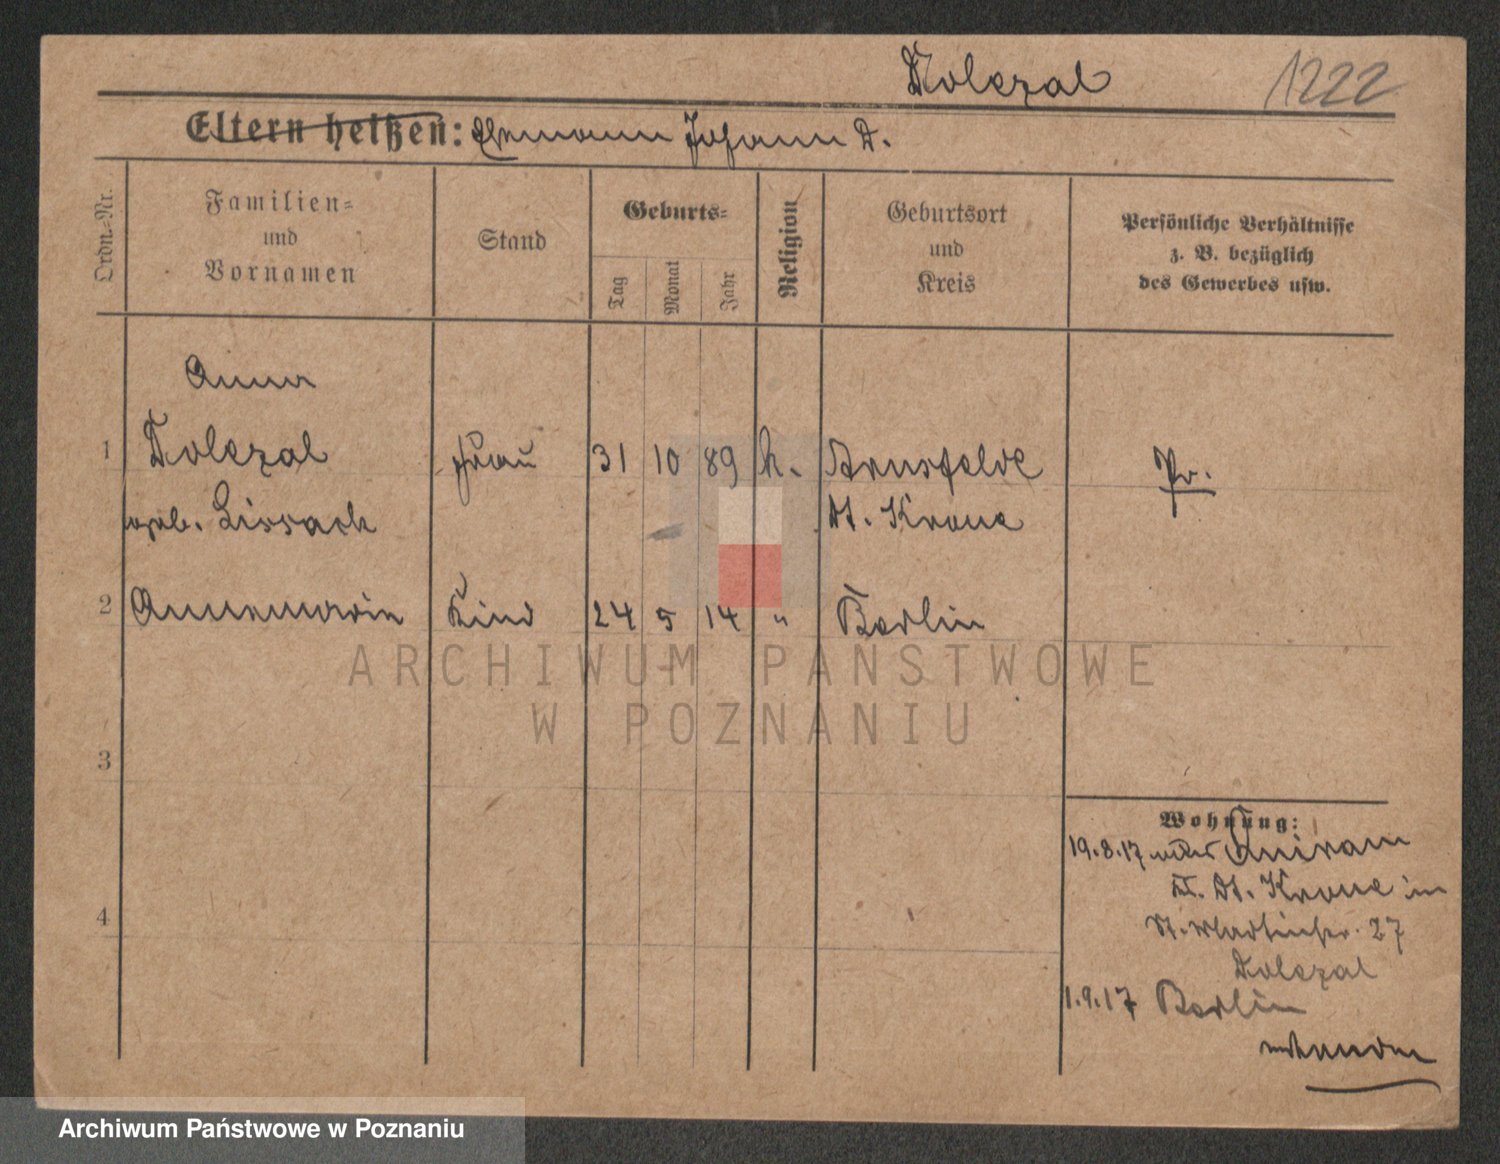 Dolezal 1222
Eltern heißen: Ehemann Johann D.
Ordn.-Nr.
Familien-
und
Vornamen
Stand
Geburts-
Tag
Monat
Jahr
Religion
Geburtsort
und
Kreis
Persönliche Verhältnisse
z. B. bezüglich
des Gewerbes usw.
Anna
1 Dolezal Frau 31 10 89 k. Arnsfelde Pr.
geb. Lissack Dt. Krone
2 Annemarie Kind 24 5 14 " Berlin
ARCHIWUM PAŃSTWOWE
W POZNANIU
3
Wohnung:
19.8.17
Dt. Krone in
4
St. Martinstr. 27
Dolezal
1.9.17 Berlin
Archiwum Państwowe w Poznaniu